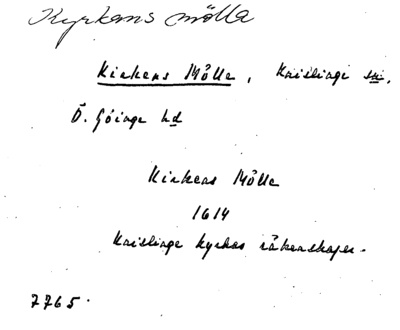 Kyrkans mölla
Kirkens Mölle, Knislinge sn.
Ö. Göinge hd
Kirkens Mölle
1614
Knislinge kyrkas räkenskaper.
7765.